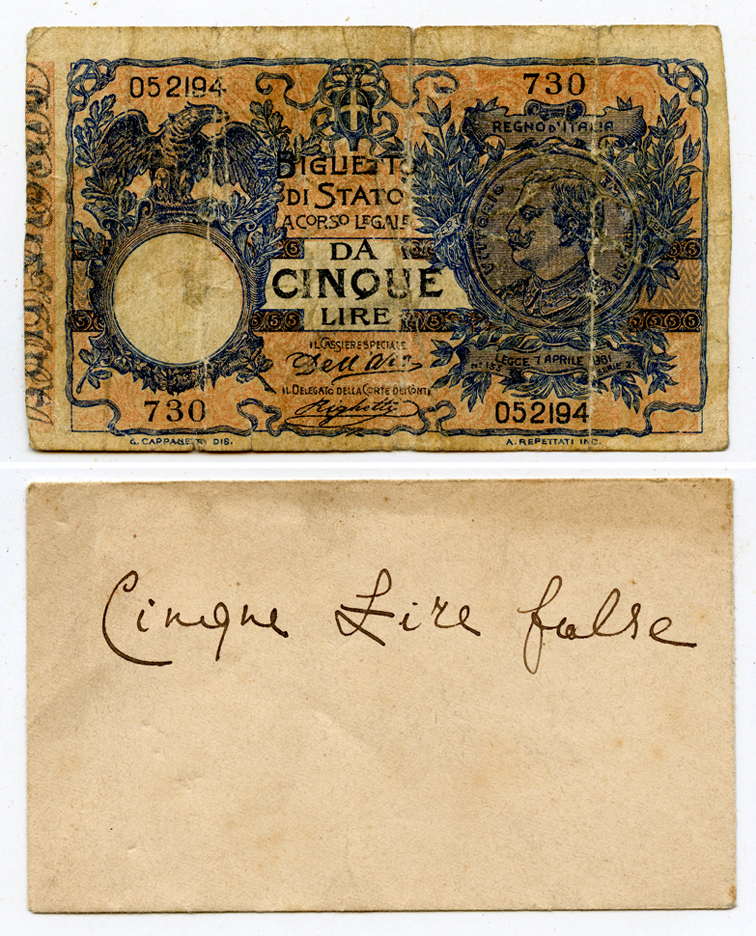 052194
730
REGNO D'ITALIA
BIGLIETTO
DI STATO
A CORSO LEGALE
DA
CINQUE
LIRE
VITTORIO
IL CASSIERE SPECIALE
Dell'Ara
IL DELEGATO DELLA CORTE DEI CONTI
Righetti
LEGGE 7 APRILE 1881
Nº 133 SERIE 3ª
730
052194
G. CAPPANETTI DIS.
A. REPETTATI INC.
Cinque Lire false